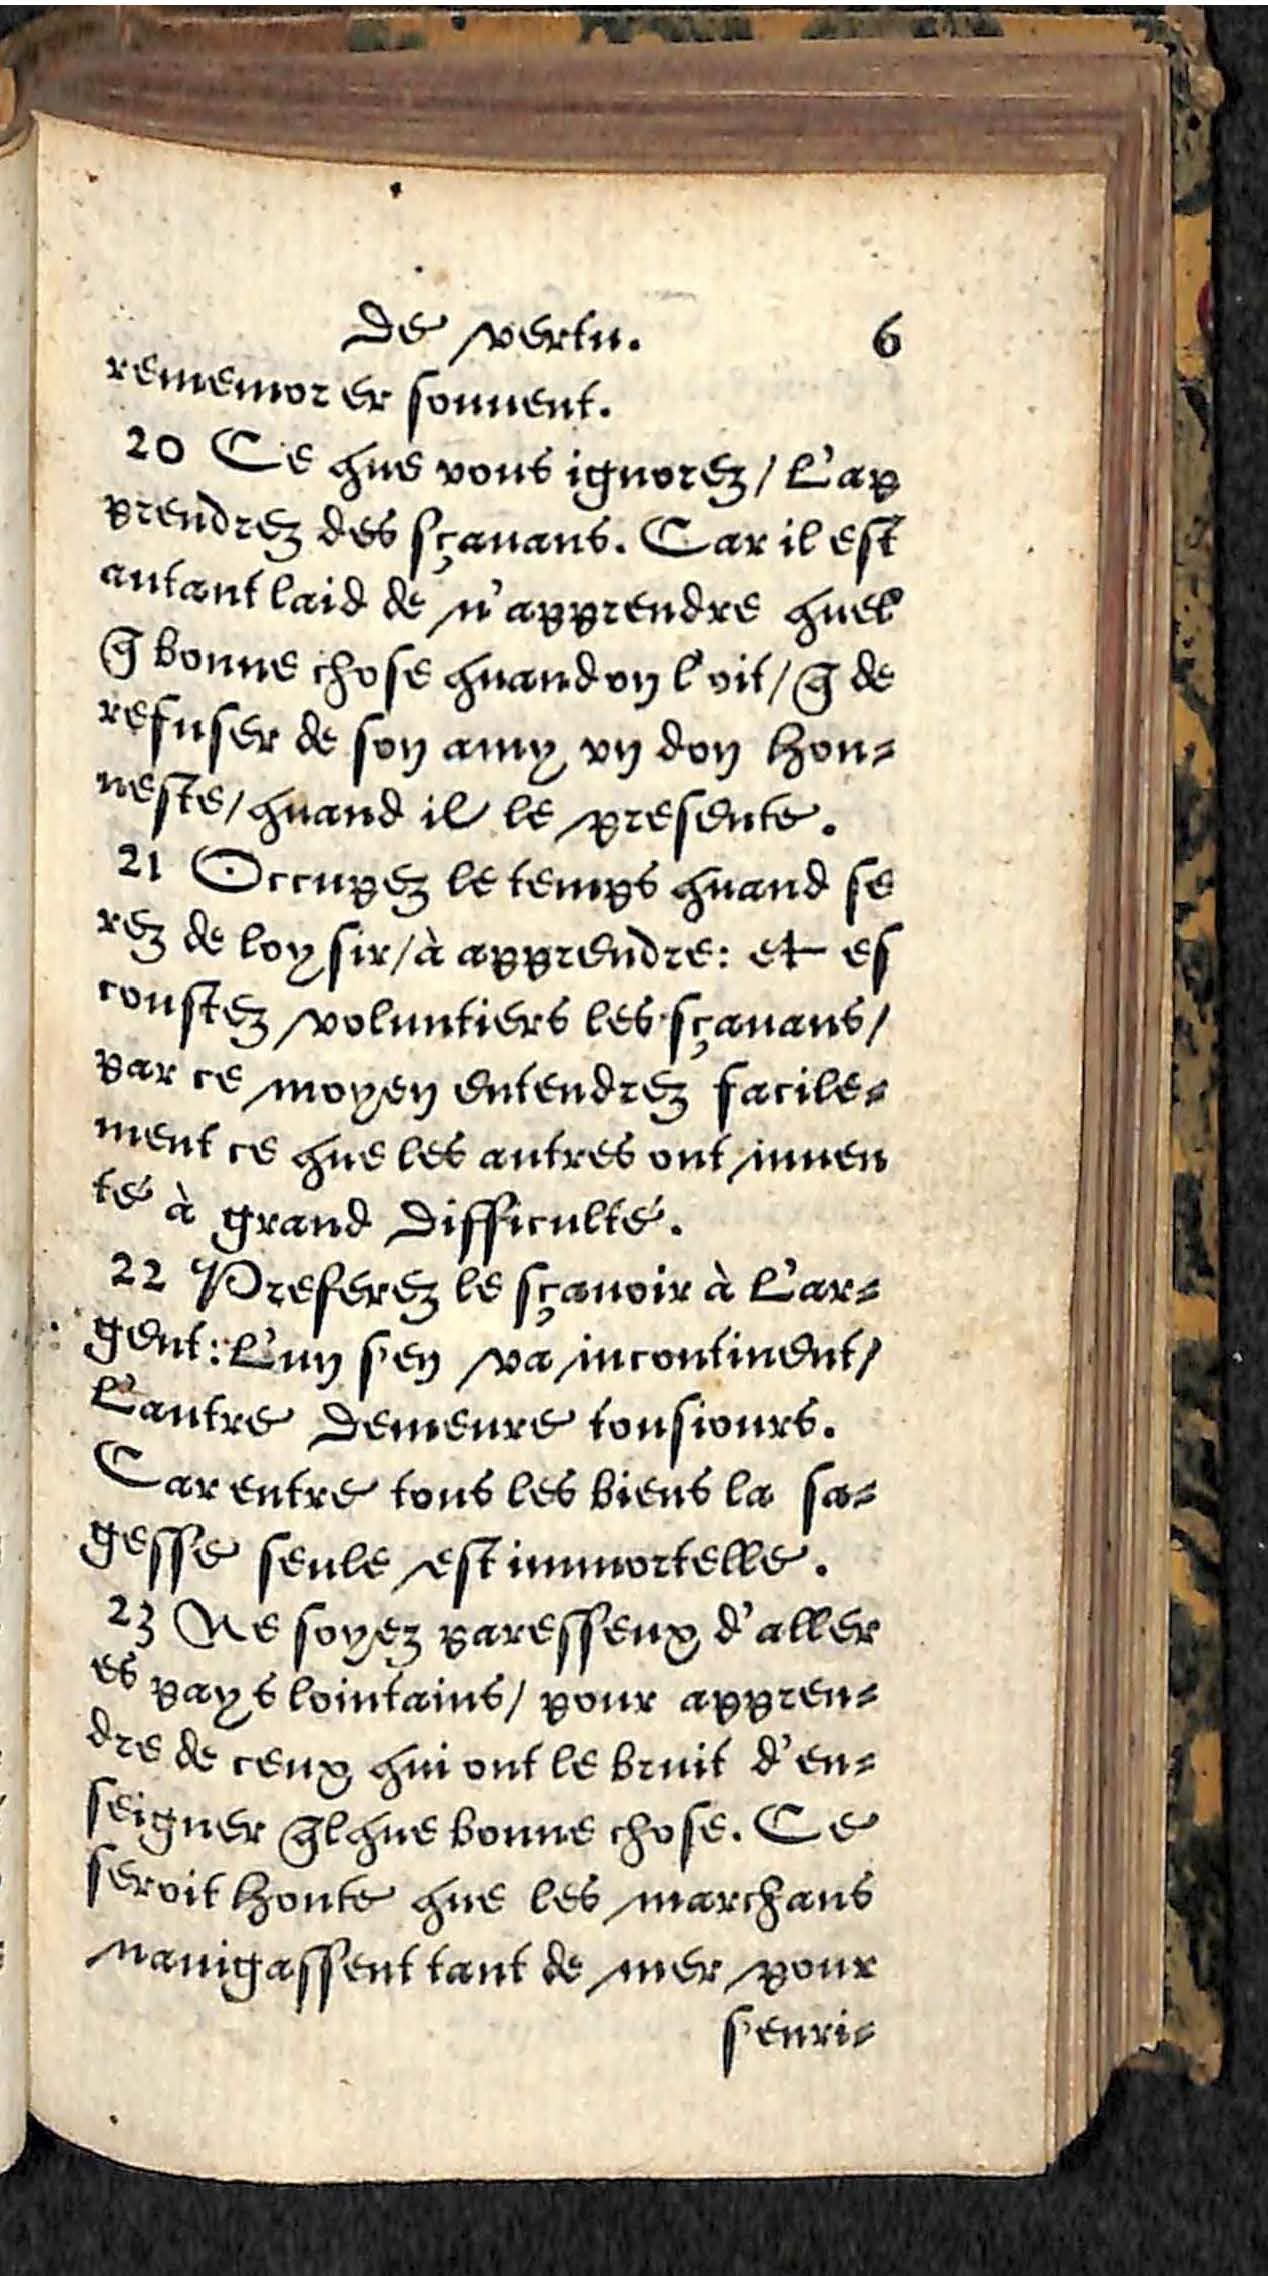 De vertu. 6
rememorer souuent.
20 Ce que vous ignorez / l'ap
prendrez des sçauans. Car il est
autant laid de n'apprendre quel
q̃ bonne chose quand on l'oit / q̃ de
refuser de son amy vn don hon-
neste / quand il le presente.
21 Occupez le temps quand se
rez de loysir / à apprendre: et es
coustez voluntiers les sçauans /
par ce moyen entendrez facile-
ment ce que les autres ont inuen
té à grand difficulté.
22 Preferez le sçauoir à l'ar-
gent: l'un s'en va incontinent /
l'autre demeure tousiours.
Car entre tous les biens la sa-
gesse seule est immortelle.
23 Ne soyez paresseux d'aller
es pays lointains / pour appren-
dre de ceux qui ont le bruit d'en-
seigner q̃lque bonne chose. Ce
seroit honte que les marchans
nauigassent tant de mer pour
s'enri-